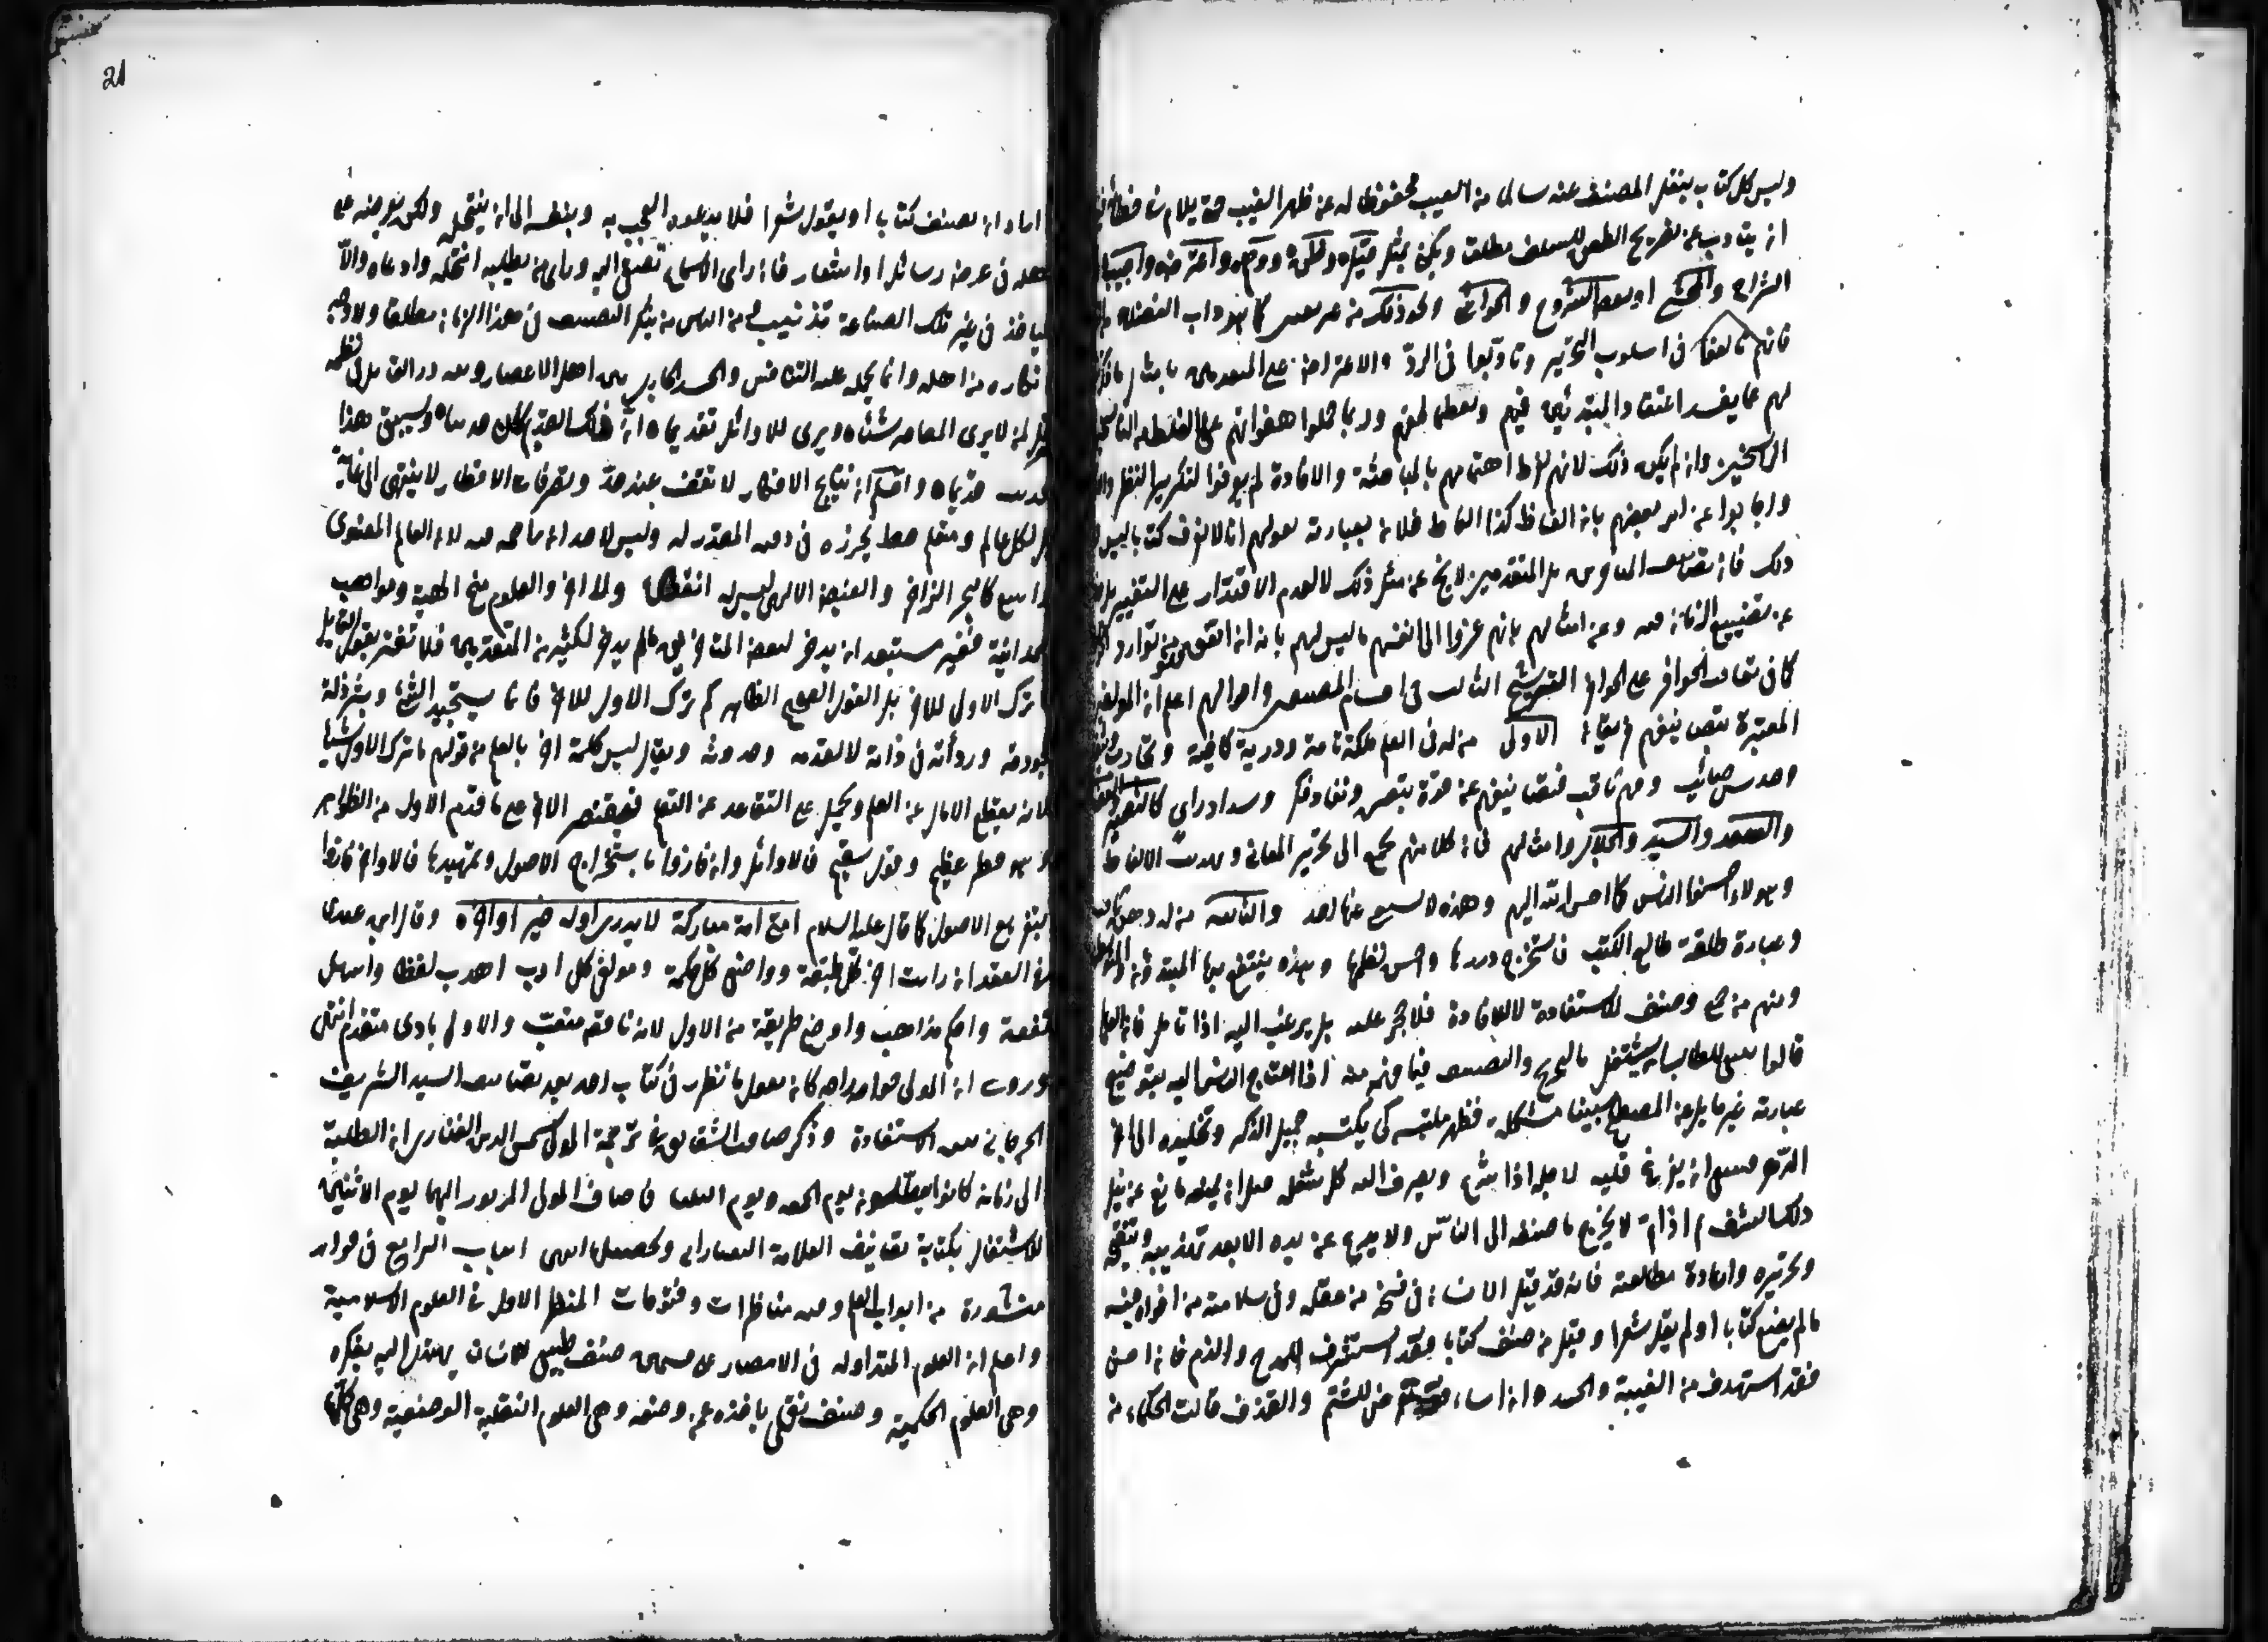 وليس كل كتاب ينقل المصنف عنه سالما من العيب محفوظا له عن ظهر الغيب حتى يلام في خطائه
ان يتادب عن تصريح الطعن للسلف مطلقا ويكنى بمثل قيل وظن ووهم واعترض واجيب
الشراح والمحشى او بعض الشروح والحواشى ونحو ذلك من غير تعيين كما هو داب الفضلاء
فانهم تانقوا فى اسلوب التحرير وتادبوا فى الرد والاعتراض على المتقدمين بامثال ما ذكر
لهم عما يفسد اعتقاد المبتدئين فيهم وتعظيما لحقهم وربما حملوا هفواتهم على الغلط من الناسخين
الراسخين وان لم يكن ذلك لانهم لفرط اهتمامهم بالمباحثة والافادة لم يفرغوا لتكرير النظر
واجابوا عن لمز بعضهم بان الفاظ كذا الفاظ فلان بعبارته بقولهم انا لا نعرف كتابا ليس
ذلك فان تصانيف المتاخرين بل المتقدمين لا يخ عن مثل ذلك لا لعدم الاقتدار على التغيير بل
عن تضييع الزمان فيه وعن امثالهم بانهم عزوا الى انفسهم ما ليس لهم بانه ان اتفق فهو من توارد
كما فى تعاقب الحوافر على الحوافر الترشيح الثالث فى اقسام المصنفين واحوالهم اعلم ان المولفين
المعتبرة تصانيفهم فريقان الاول من له فى العلم ملكة تامة ودربة كافية وتجارب
وحدس صائب وفهم ثاقب فتصانيفهم عن قوة تبصر ونفاذ فكر وسداد راى كالنصير
والسعد والسيد والجلال وامثالهم فان كلا منهم يجمع الى تحرير المعانى وتهذيب الالفاظ
وهولاء احسنوا الى الناس كما احسن الله اليهم وهذه لا يستغنى عنها احد والثانى من له ذهن ثاقب
وعبارة طلقة طالع الكتب فاستخرج دررها واحسن نظمها وهذه ينتفع بها المبتدئون
ومنهم من جمع وصنف للاستفادة لا للافادة فلا حجر عليه بل يرغب اليه اذا تاهل فان العلماء
قالوا ينبغى للطالب ان يشتغل بالتخريج والتصنيف فيما فهمه منه اذا احتاج الناس اليه بتوضيح
عبارته غير مايل عن المصطلح مبينا مشكله مظهرا ملتبسه كى يكتسبه جميل الذكر وتخليده الى اخر
الدهر فينبغى ان يفرغ قلبه لاجله اذا شرع ويصرف اليه كل شغله قبل ان يمنعه مانع عن نيل
ذلك الشرف ثم اذا تم لا يخرج ما صنفه الى الناس ولا يدعه عن يده الا بعد تهذيبه وتنقيحه
وتحريره واعادة مطالعته فانه قد قيل الانسان فى فسحة من عقله وفى سلامة من افواه جنسه
ما لم يصنع كتابا او لم يقل شعرا وقيل من صنف كتابا فقد استشرف للمدح والذم فان احسن
فقد استهدف من الغيبة والحسد وان اساء فقد تعرض للشتم والقذف قالت الحكماء من
اراد ان يصنف كتابا او يقول شعرا فلا يدعوه العجب به وبنفسه الى ان ينتحله ولكن يعرضه على
اهله فى عرض رسائل او اشعار فان راى الاسماع تصغى اليه وراى من يطلبه انتحله وادعاه والا
فلياخذ فى غير تلك الصناعة تذنيب ومن الناس من ينكر التصنيف فى هذا الزمان مطلقا ولا وجه
لانكاره من اهله وانما يحمله عليه التنافس والحسد الجارى بين اهل الاعصار ولله در القائل فى نظمه
قل لمن لا يرى المعاصر شيئا ويرى للاوائل تقديما ان ذاك القديم كان حديثا وسيبقى هذا
الحديث قديما واعلم ان نتايج الافكار لا تقف عند حد وتصرفات الانظار لا ينتهى الى غاية
بل لكل عالم ومتعلم حظ يحرزه فى وقته المقدر له وليس لاحد ان يزاحمه فيه لان العالم المعنوى
واسع كالبحر الزاخر والفيض الالهى ليس له انقطاع ولا اخر والعلوم منح الهية ومواهب
صمدانية فغير مستبعد ان يدخر لبعض المتاخرين ما لم يدخر لكثير من المتقدمين فلا تغتر بقول القايل
ما ترك الاول للاخر بل القول الصحيح الظاهر كم ترك الاول للاخر فانما يستجيد الشئ ويسترذله
لجودته وردائته فى ذاته لا لقدمه وحدوثه ويقال ليس كلمة اضر بالعلم من قولهم ما ترك الاول شيئا
لانه يقطع الامال عن العلم ويحمل على التقاعد عن التعلم فيقتصر الاخر على ما قدم الاول من الظواهر
وهو خطر عظيم وقول سقيم فالاوائل وان فازوا باستخراج الاصول وتمهيدها فالاواخر فازوا
بتفريع الاصول كما قال عليه السلام امتى امة مباركة لا يدرى اولها خير او اخرها وقال ابن عبد
فى العقد انى رايت اخر كل طبقة وواضعى كل حكمة ومولفى كل ادب اهذب لفظا واسهل
لغة واحكم مذاهب واوضح طريقة من الاول لانه ناقض متعقب والاول بادى متقدم انتهى
وروى ان المولى خواجه زاده كان يقول ما نظرت فى كتاب احد بعد تصانيف السيد الشريف
الجرجانى بنية الاستفادة وذكر صاحب الشقائق فى ترجمة المولى شمس الدين الفنارى ان الطلبة
الى زمانه كانوا يعطلون يوم الجمعة ويوم الثلثا فاضاف المولى المزبور اليهما يوم الاثنين
للاشتغال بكتابة تصانيف العلامة التفتازانى وتحصيلها انتهى الباب الرابع فى فوايد
منثورة من ابواب العلم وفيه مناظرات وفتوحات المنظر الاول فى العلوم الاسلامية
واعلم ان العلوم المتداوله فى الامصار على صنفين صنف طبيعى للانسان يهتدى اليه بفكره
وهى العلوم الحكمية وصنف نقلى ياخذه عمن وضعه وهى العلوم النقلية الوضعية وهى كلها
21